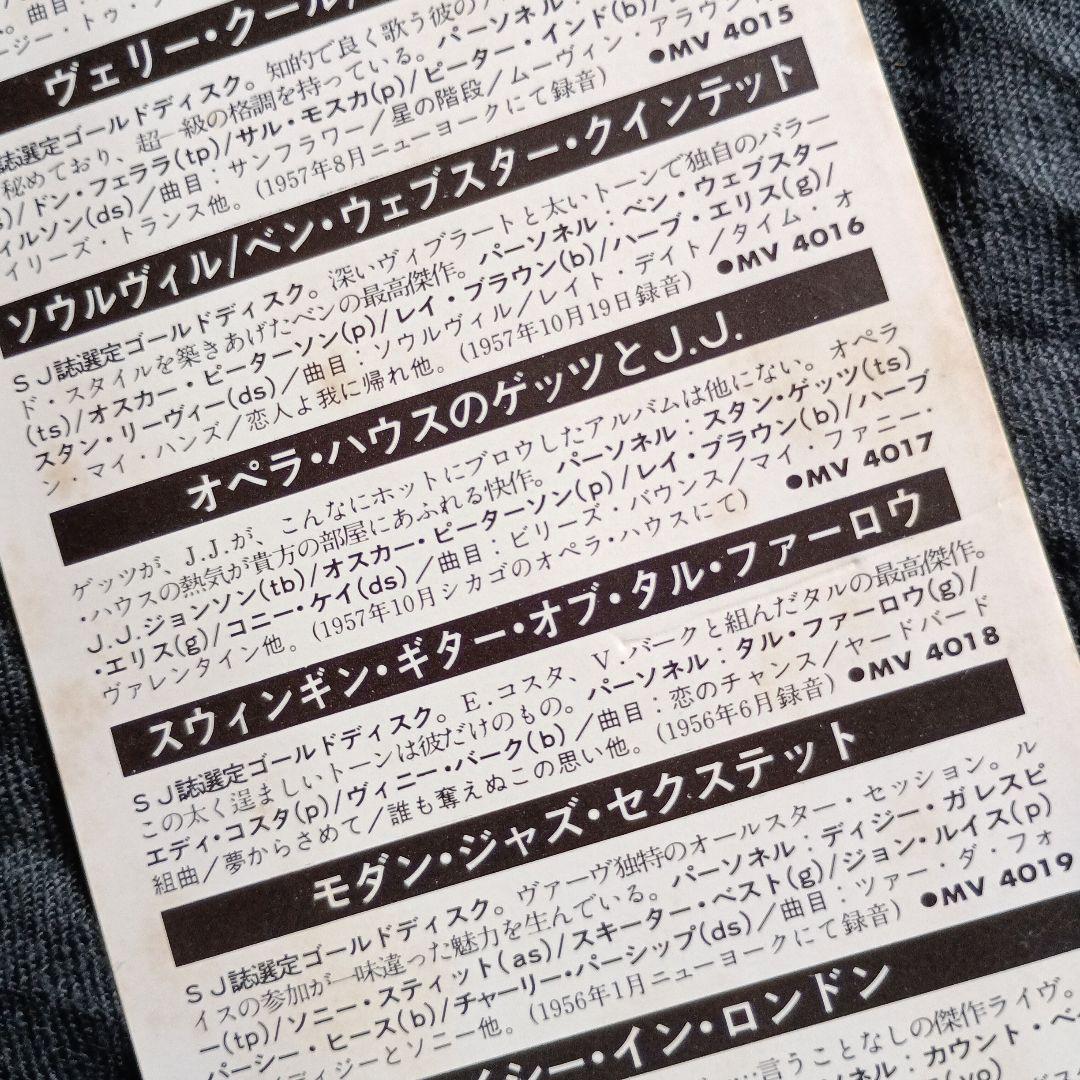 ヴェリー・クール/
誌選定ゴールドディスク。知的で良く歌う彼の
秘めており、超一級の格調を持っている。パーソネル:
s)/ドン・フェララ(tp)/サル・モスカ(p)/ピーター・インド(b)/
ィルソン(ds)/曲目:サンフラワー/星の階段/ムーヴィン・アラウンド
イリーズ・トランス他。(1957年8月ニューヨークにて録音)
●MV 4015
ソウルヴィル/ベン・ウェブスター・クインテット
SJ誌選定ゴールドディスク。深いヴィブラートと太いトーンで独自のバラー
ド・スタイルを築きあげたベンの最高傑作。パーソネル:ベン・ウェブスター
(ts)/オスカー・ピーターソン(p)/レイ・ブラウン(b)/ハーブ・エリス(g)/
スタン・リーヴィー(ds)/曲目:ソウルヴィル/レイト・デイト/タイム・オ
ン・マイ・ハンズ/恋人よ我に帰れ他。(1957年10月19日録音)
●MV 4016
オペラ・ハウスのゲッツとJ.J.
ゲッツが、J.J.が、こんなにホットにブロウしたアルバムは他にない。オペラ
・ハウスの熱気が貴方の部屋にあふれる快作。パーソネル:スタン・ゲッツ(ts)
J.J.ジョンソン(tb)/オスカー・ピーターソン(p)/レイ・ブラウン(b)/ハーブ
・エリス(g)/コニー・ケイ(ds)/曲目:ビリーズ・バウンス/マイ・ファニー・
ヴァレンタイン他。(1957年10月シカゴのオペラ・ハウスにて)
●MV 4017
スウィンギン・ギター・オブ・タル・ファーロウ
SJ誌選定ゴールドディスク。E.コスタ、V.バークと組んだタルの最高傑作。
この太く逞ましいトーンは彼だけのもの。パーソネル:タル・ファーロウ(g)/
エディ・コスタ(p)/ヴィニー・バーク(b)/曲目:恋のチャンス/ヤードバード
組曲/夢からさめて/誰も奪えぬこの思い他。(1956年6月録音)
●MV 4018
モダン・ジャズ・セクステット
SJ誌選定ゴールドディスク。ヴァーヴ独特のオールスター・セッション。ル
イスの参加が一味違った魅力を生んでいる。パーソネル:ディジー・ガレスピ
ー(tp)/ソニー・スティット(as)/スキーター・ベスト(g)/ジョン・ルイス(p)
パーシー・ヒース(b)/チャーリー・パーシップ(ds)/曲目:ツアー・ダ・フォ
ディジーとソニー他。(1956年1月ニューヨークにて録音)
●MV 4019
イシー・イン・ロンドン
言うことなしの傑作ライヴ。
ソネル:カウント・ベ